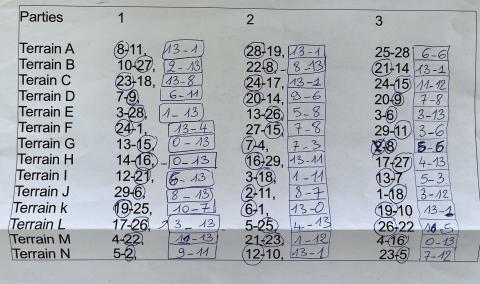 Parties 1 2 3
Terrain A 8-11, 13-1 28-19, 13-1 25-28 6-6
Terrain B 10-27, 2-13 22-8, 8-13 21-14 13-1
Terrain C 23-18, 13-8 24-17, 13-1 24-15 11-12
Terrain D 7-9, 6-11 20-14, 9-6 20-9 7-8
Terrain E 3-28, 1-13 13-26, 5-8 3-6 3-13
Terrain F 24-1, 13-4 27-15, 7-8 29-11 3-6
Terrain G 13-15, 0-13 7-4, 7-3 2-8
Terrain H 14-16, 0-13 16-29, 13-11 17-27 4-13
Terrain I 12-21, 6-13 3-18, 1-11 13-7 5-3
Terrain J 29-6, 8-13 2-11, 8-7 1-18 3-12
Terrain k 19-25, 10-7 6-1, 13-0 19-10 13-1
Terrain L 17-26, 3-13 5-25, 4-13 26-22
Terrain M 4-22, 21-23, 1-12 4-16 0-13
Terrain N 5-2, 9-11 12-10, 13-1 23-5 7-12